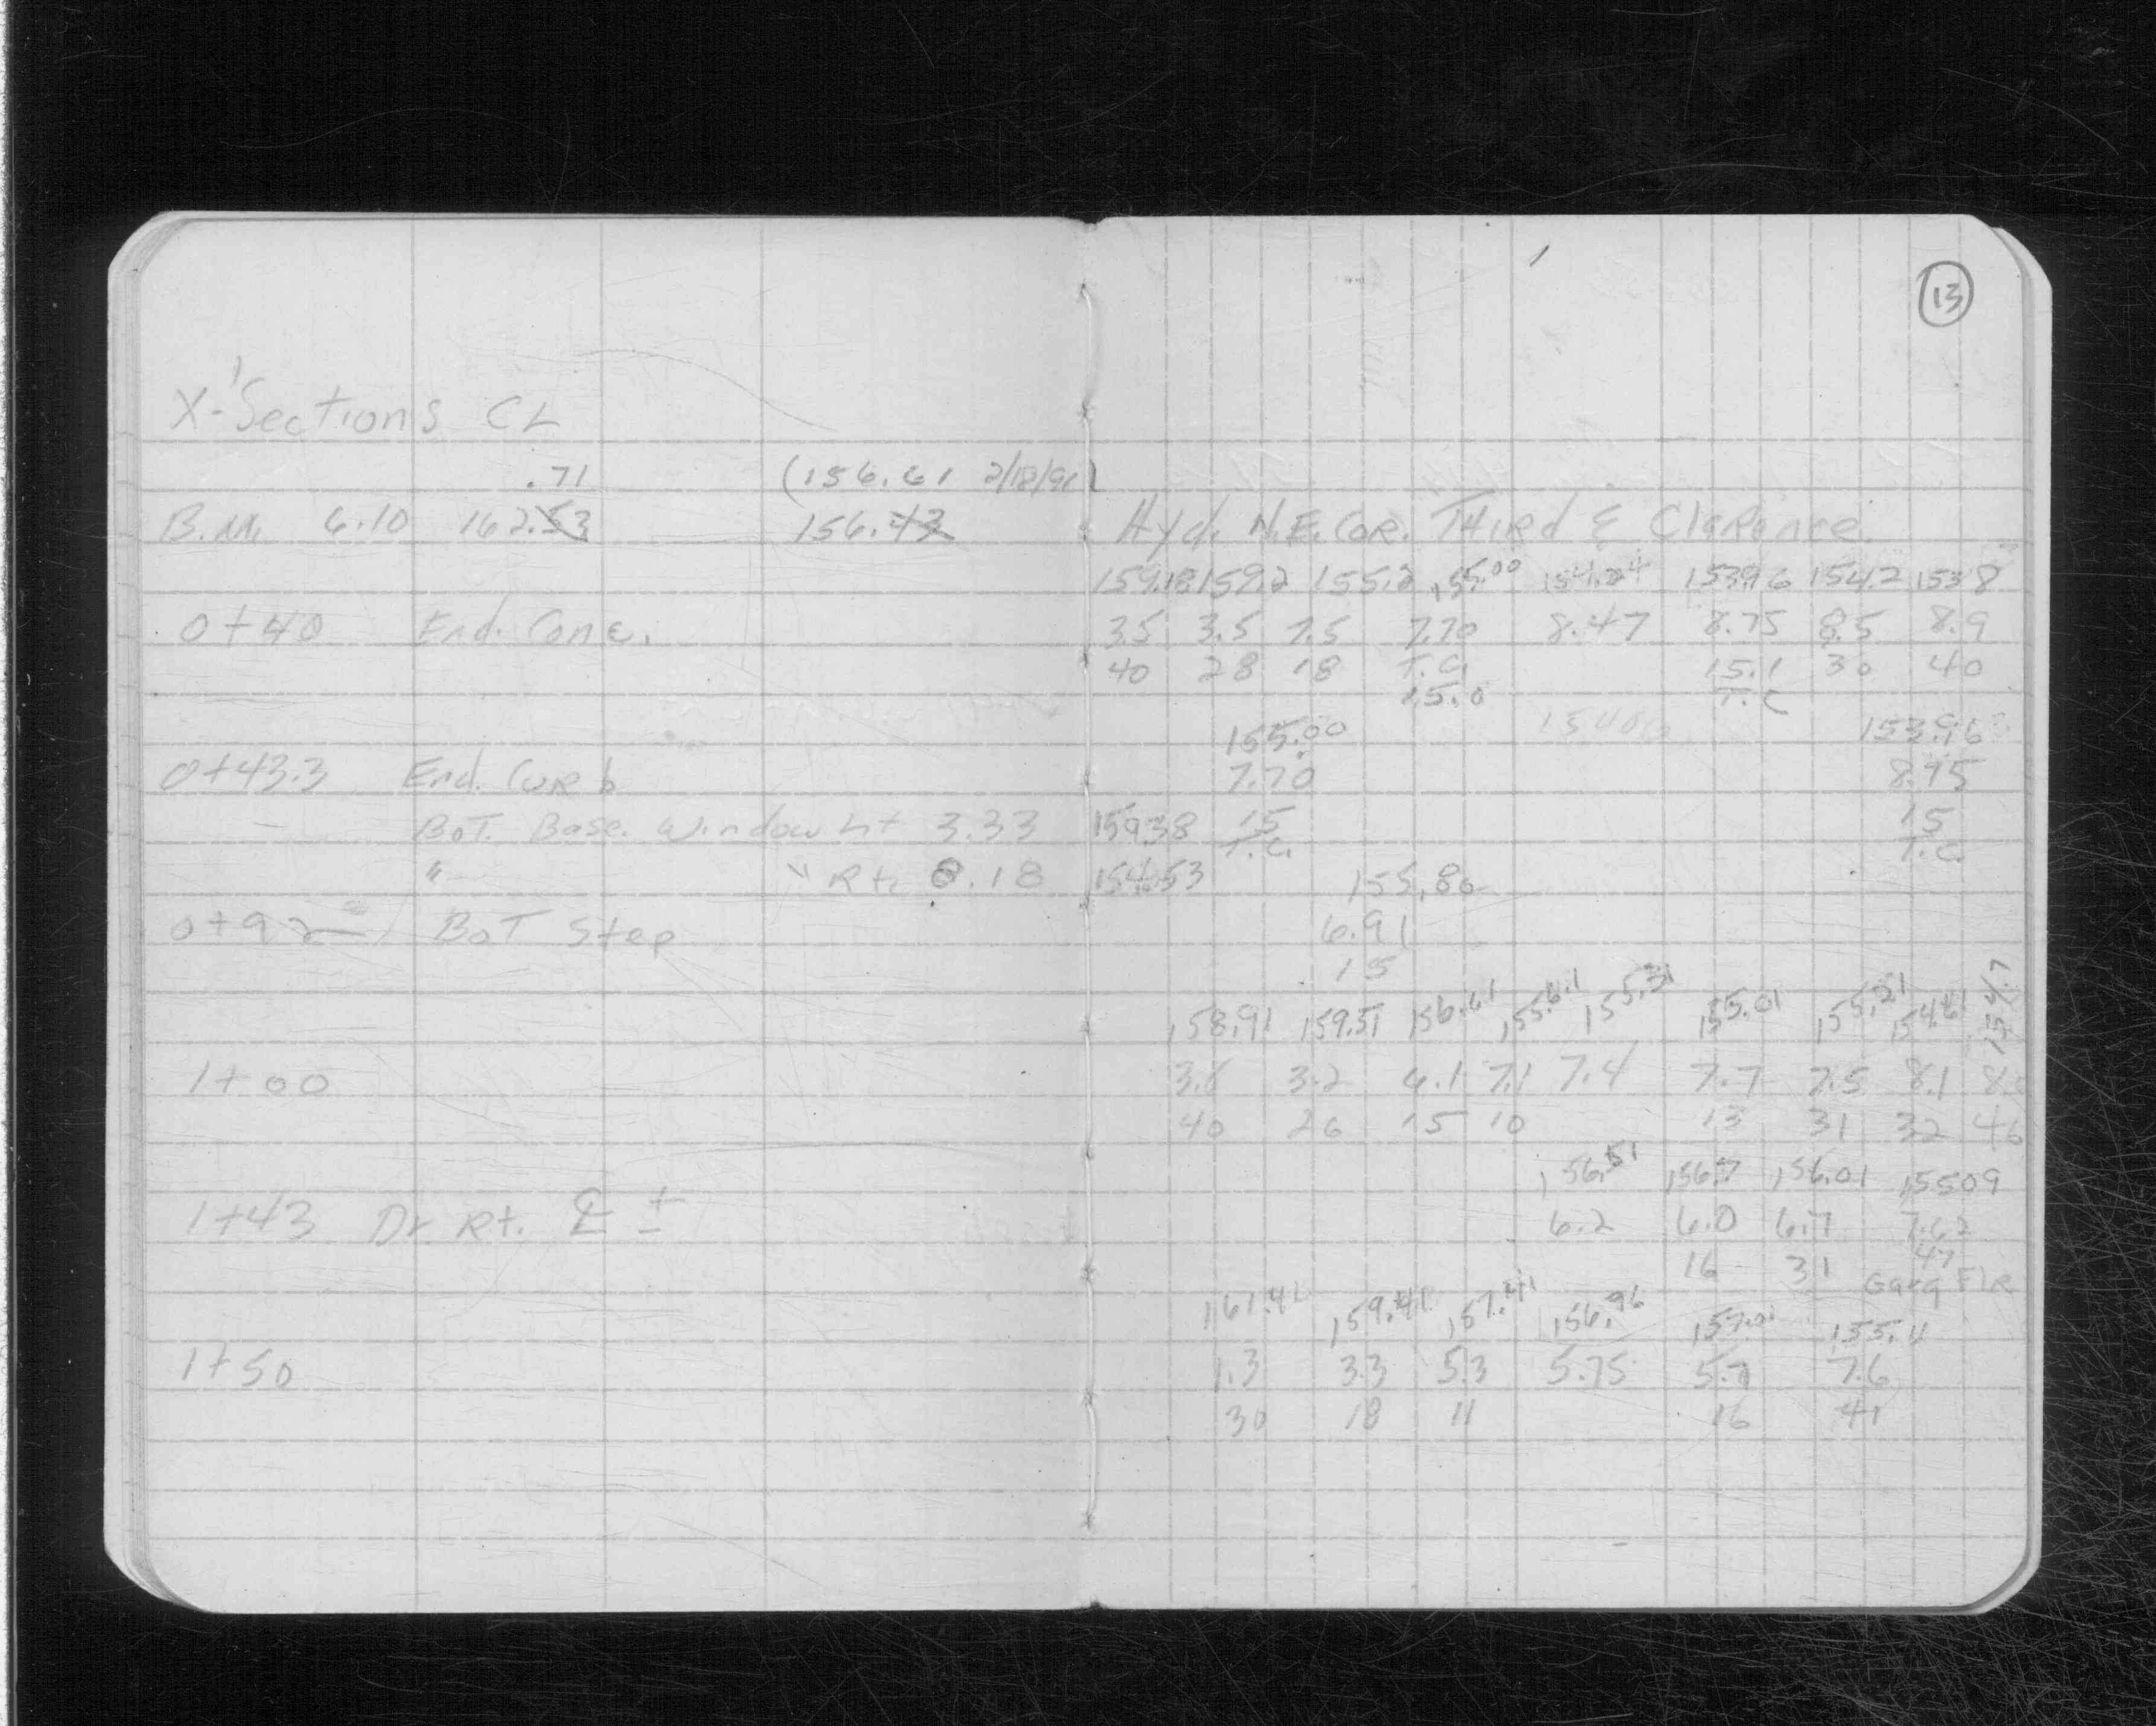 13
X-Sections CL
.71 (156.61 2/18/91)
B.M. 6.10 162.53 156.43 Hyd. N.E. Cor. Third & Clarence.
159.18 159.2 155.2 155.00 154.24 153.96 154.2 153.8
0+40 End. Conc. 3.5 3.5 7.5 7.70 8.47 8.75 8.5 8.9
40 28 18 T.C. 15.1 30 40
15.0 T.C
155.00 153.96
0+43.3 End. Curb 7.70 8.75
Bot. Base. Window Lt 3.33 159.38 15 15
T.C. T.C.
" " Rt. 8.18 154.53 155.80
0+92 Bot Step 6.91
15
158.91 159.51 156.61 155.61 155.31 155.01 155.21 154.61 154.7
1+00 3.8 3.2 6.1 7.1 7.4 7.7 7.5 8.1
40 26 15 10 13 31 32 46
156.51 156.7 156.01 155.09
1+43 Dr. Rt. ℄ ± 6.2 6.0 6.7 7.62
16 31 47
Garg Flr
161.41 159.41 157.41 156.96 157.01 155.11
1+50 1.3 3.3 5.3 5.75 5.7 7.6
30 18 11 16 41